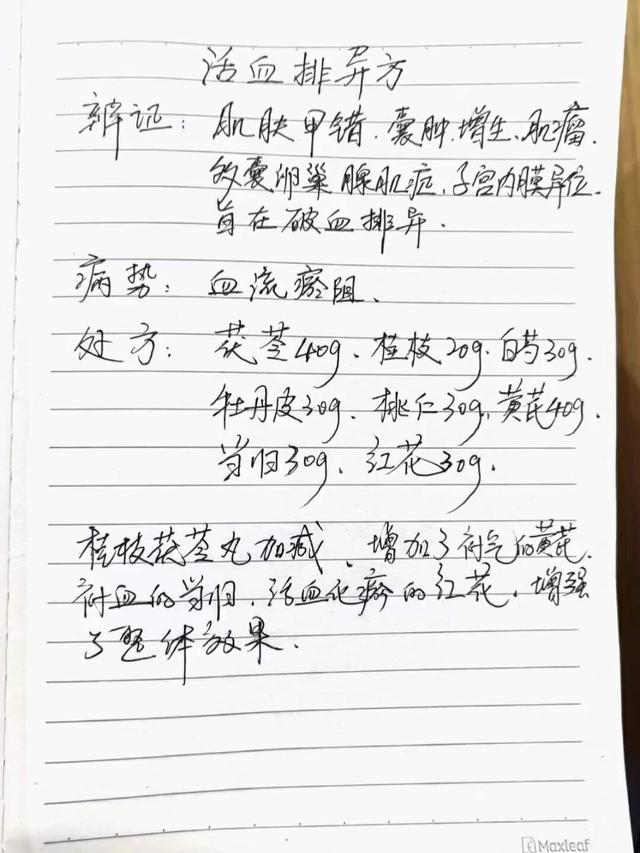 活血排异方
辨证：肌肤甲错、囊肿、增生、肌瘤、
多囊卵巢腺肌症、子宫内膜异位、
旨在破血排异.
病势：血流瘀阻、
处方：茯苓40g、桂枝20g、白芍30g、
牡丹皮30g、桃仁30g、黄芪40g、
当归30g、红花30g.
桂枝茯苓丸加减、增加了补气的黄芪、
补血的当归、活血化瘀的红花、增强
了整体效果.
Maxleaf